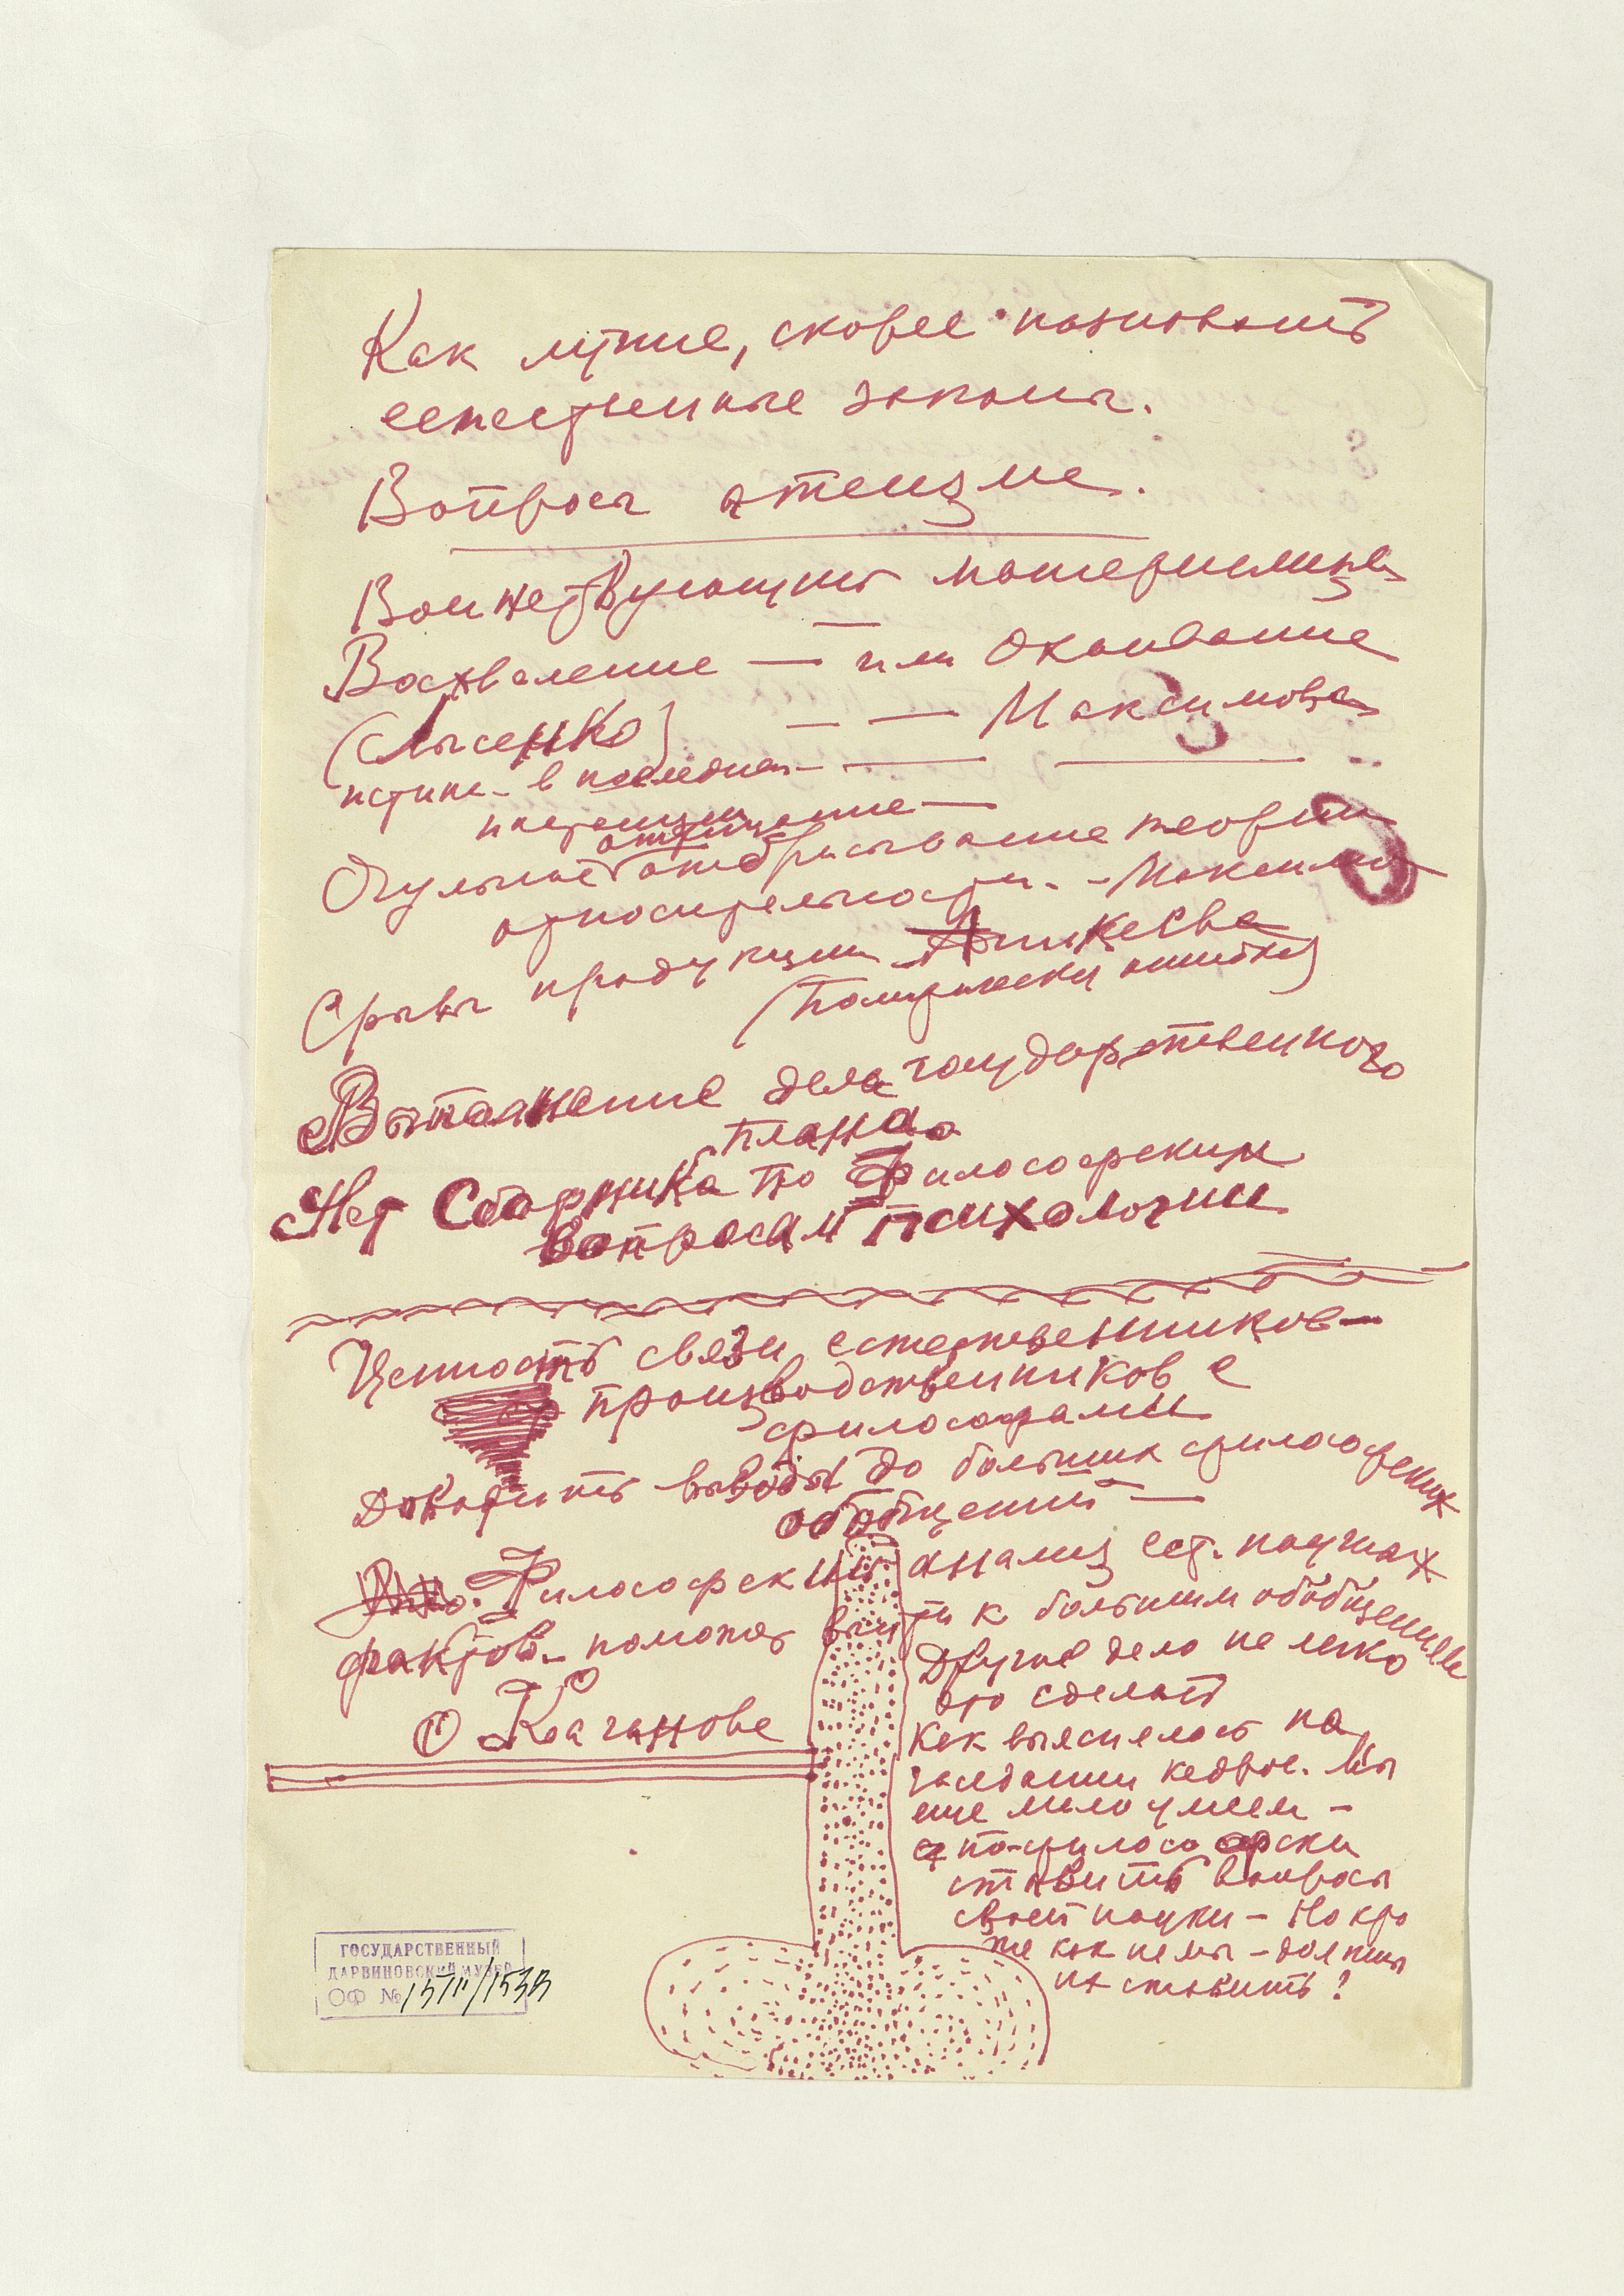 Как лучше, скорее познавать
естественные законы.
Вопросы атеизма.
Воинствующий материализм
Восхваление — или Охаивание
(Лысенко) — — Максимова
истина в последней
инстанции
отрицание —
Огульное отбрасывание теории
относительности. - Максимов
Срывы продукции Аникеева
(Политически ошибки)
Выполнение дела государственного
плана
Нет Сборника по Философским
вопросам психологии
Ценность связи естественников —
производственников с
философами
Доводить выводы до больших философских
обобщений —
Философский анализ ест. научных
фактов - помогает выйти к большим обобщениям
О Каганове
Другое дело не легко
это сделать
Как выяснилось на
заседании кафедр. Мы
еще мало умеем —
по-философски
ставить вопросы
своей науки — Но кто
же как не мы — должны
их ставить?
ГОСУДАРСТВЕННЫЙ
ДАРВИНОВСКИЙ МУЗЕЙ
ОФ №